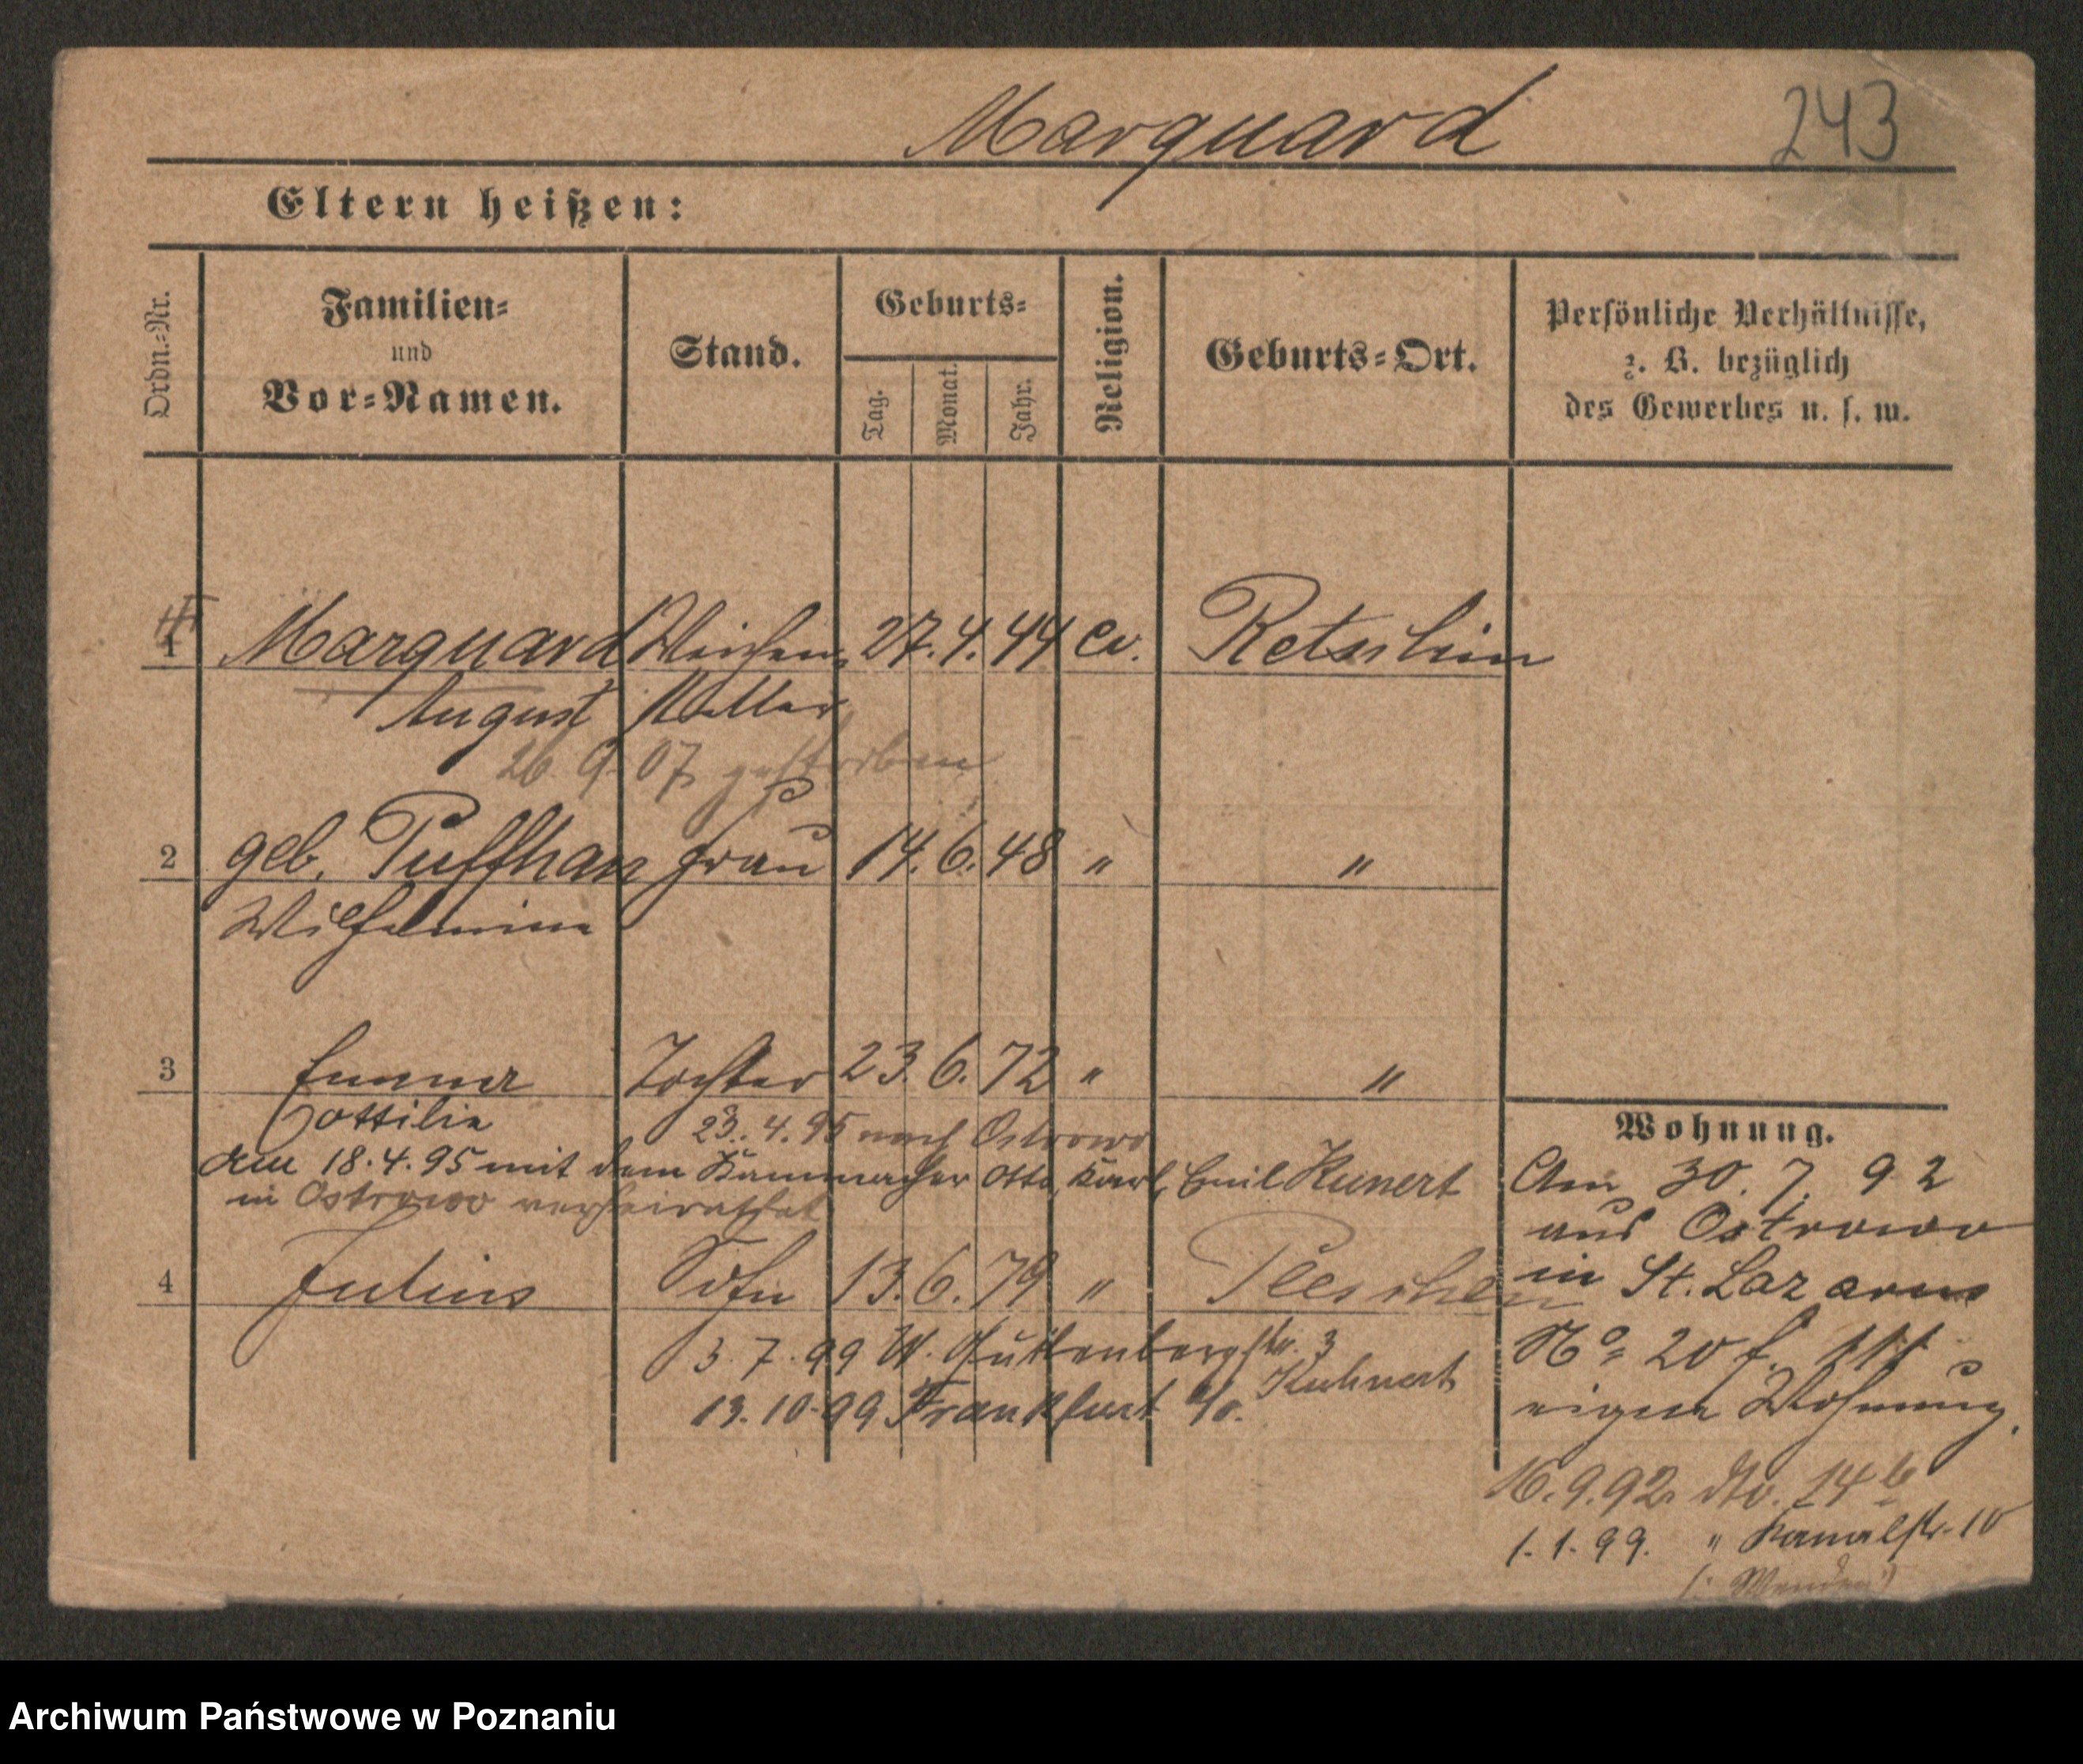 Marquard 243
Eltern heißen:
Ordn.-Nr. Familien- und Vor-Namen. Stand. Geburts- Tag. Monat. Jahr. Religion. Geburts-Ort. Persönliche Verhältnisse, z. B. bezüglich des Gewerbes u. s. w.
1 Marquard Weichen 27. 4. 44 ev.
August
26. 9. 07 gestorben
2 geb. Frau 14. 6. 48 " "
Wilhelmine
3 Emma Tochter 23. 6. 72 " "
Ottilie 23. 4. 95 nach Ostrowo
am 18. 4. 95 mit dem Otto, Karl, Emil Kunert
in Ostrowo verheirathet
4 Julius Sohn 13. 6. 79 " Pleschen
3. 7. 99 Guttenbergstr. 3
13. 10. 99 Frankfurt a/o. Kuhnert
Wohnung.
Am 30. 7. 92
aus Ostrowo
in St. Lazarus
No 20 f.
eigene Wohnung.
16. 9. 92 dto. 14 b
1. 1. 99. " Kanalstr. 10
Archiwum Państwowe w Poznaniu